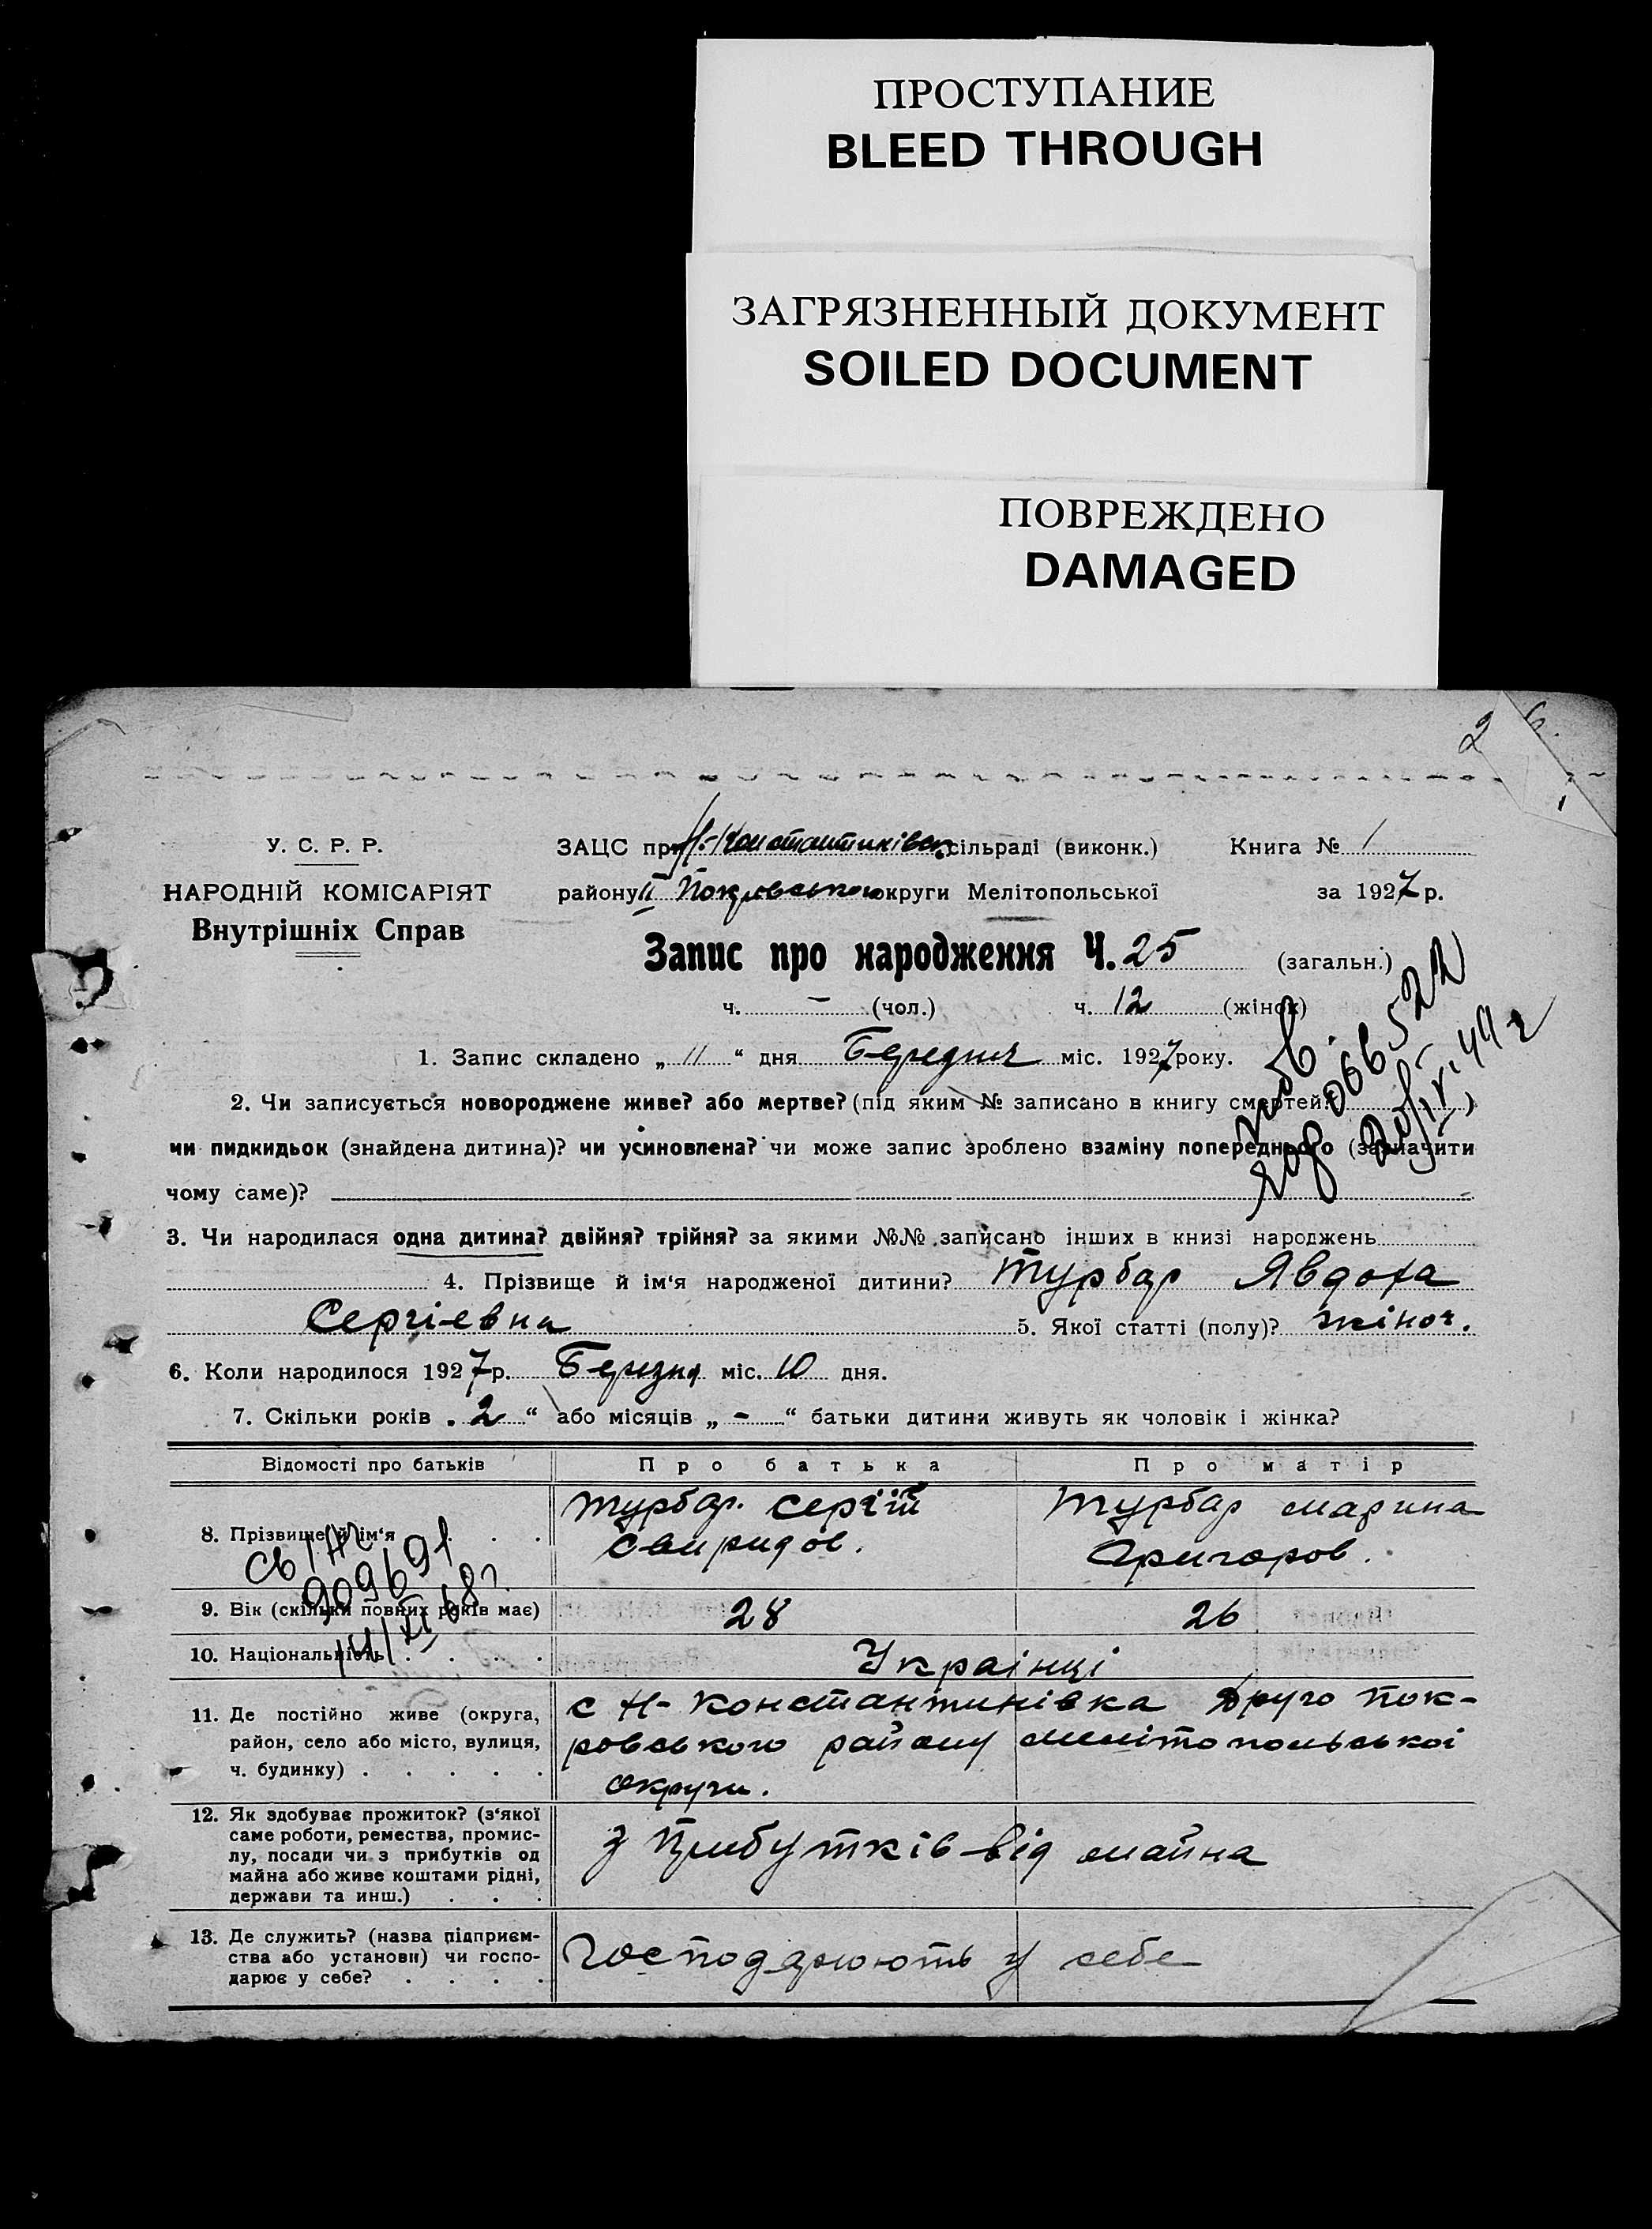 ПРОСТУПАНИЕ
BLEED THROUGH
ЗАГРЯЗНЕННЫЙ ДОКУМЕНТ
SOILED DOCUMENT
ПОВРЕЖДЕНО
DAMAGED
2
У. С. Р. Р.
НАРОДНІЙ КОМІСАРІЯТ
Внутрішніх Справ
ЗАЦС при Н-Константинівск. сільраді (виконк.) Книга № 1
району II Покровського округи Мелітопольської за 1927 р.
Запис про народження Ч. 25 (загальн.)
ч. – (чол.) ч. 12 (жінок)
1. Запис складено „ 11 “ дня Березня міс. 1927 року.
2. Чи записується новороджене живе? або мертве? (під яким № записано в книгу смертей? )
чи пидкидьок (знайдена дитина)? чи усиновлена? чи може запис зроблено взаміну попереднього (зазначити
чому саме)?
3. Чи народилася одна дитина? двійня? трійня? за якими №№ записано інших в книзі народжень
4. Прізвище й ім‘я народженої дитини? Турбар Явдоха
Сергіевна 5. Якої статті (полу)? жіноч.
6. Коли народилося 1927 р. Березня міс. 10 дня.
7. Скільки років „ 2 “ або місяців „ - “ батьки дитини живуть як чоловік і жінка?
Відомості про батьків Про батька Про матір
8. Прізвище й ім‘я . . . Турбар. Сергій Свиридов. Турбар Марина Григоров.
9. Вік (скільки повних років має) 28 26
10. Національність . . . . Українці
11. Де постійно живе (округа,
район, село або місто, вулиця,
ч. будинку) . . . . .
с Н-Константинівка Друго Пок-
ровського району Мелітопольської
округи.
12. Як здобуває прожиток? (з‘якої
саме роботи, ремества, промис-
лу, посади чи з прибутків од
майна або живе коштами рідні,
держави та инш.) . . .
З Прибутків від майна
13. Де служить? (назва підприєм-
ства або установи) чи госпо-
дарює у себе? . . . .
Господарюють у себе
909691